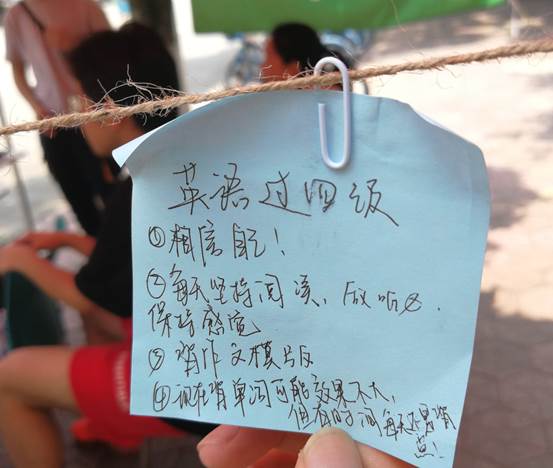 英语过四级
①相信自己!
②每天坚持阅读、做听力.
保持感觉
③背作文模版
④现在背单词可能效果不大,
但有时间每天还是背
点.